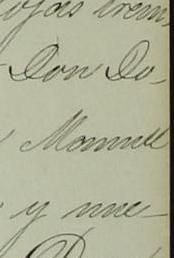 ojas trein
Don Do-
Manuel
y nue-